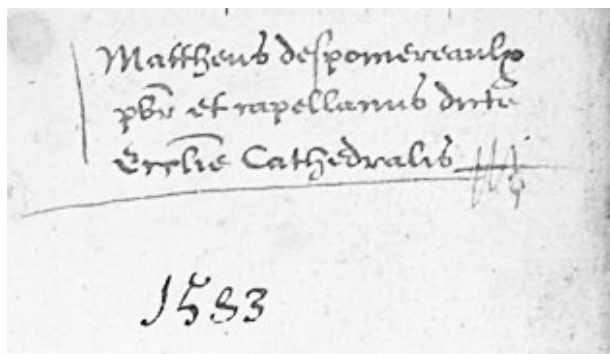 Mattheus despomereaulx
pbr et capellanus dicte
Ecclie Cathedralis
1583